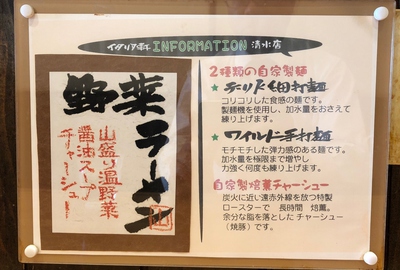 イタリア軒 INFORMATION 清水店
野菜ラーメン
山盛り温野菜
醤油スープ
チャーシュー
2種類の自家製麺
★ 細打麺
コリコリした食感の麺です。
製麺機を使用し、加水量をおさえて
練り上げます。
★ ワイルド手打麺
モチモチした弾力感のある麺です。
加水量を極限まで増やし
力強く何度も練り上げます。
自家製焙薫チャーシュー
炭火に近い遠赤外線を放つ特製
ロースターで 長時間 焙薫。
余分な脂を落とした チャーシュー
(焼豚)です。